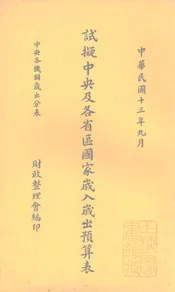 中華民國十三年九月
試擬中央及各省區國家歲入歲出預算表
中央各機關歲出分表
財政整理會編印